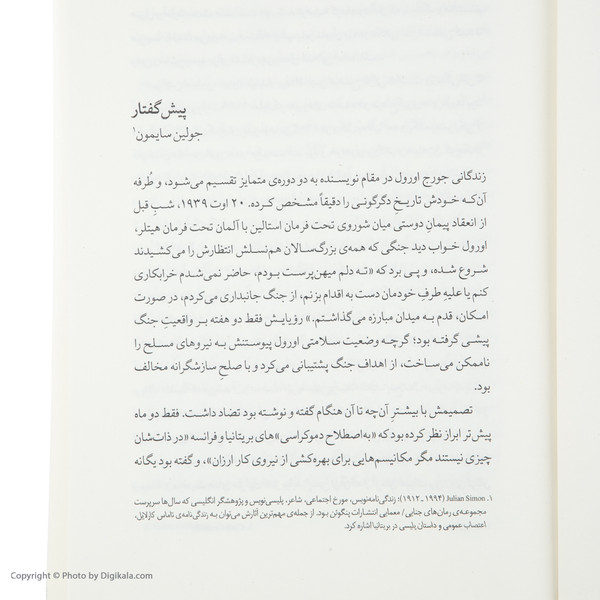 پیش‌گفتار
جولین سایمون۱
زندگانی جورج اورول در مقام نویسنده به دو دوره‌ی متمایز تقسیم می‌شود، و طُرفه
آن‌که خودش تاریخِ دگرگونی را دقیقاً مشخص کرده. ۲۰ اوت ۱۹۳۹، شبِ قبل
از انعقاد پیمانِ دوستی میان شوروی تحت فرمان استالین با آلمان تحت فرمان هیتلر،
اورول خواب دید جنگی که همه‌ی بزرگ‌سالان هم‌نسلش انتظارش را می‌کشیدند
شروع شده، و پی برد که «ته دلم میهن‌پرست بودم، حاضر نمی‌شدم خرابکاری
کنم یا علیهِ طرفِ خودمان دست به اقدام بزنم، از جنگ جانبداری می‌کردم، در صورت
امکان، قدم به میدان مبارزه می‌گذاشتم.» رؤیایش فقط دو هفته بر واقعیتِ جنگ
پیشی گرفته بود؛ گرچه وضعیت سلامتی اورول پیوستنش به نیروهای مسلح را
ناممکن می‌ساخت، از اهداف جنگ پشتیبانی می‌کرد و با صلحِ سازشگرانه مخالف
بود.
تصمیمش با بیشترِ آن‌چه تا آن هنگام گفته و نوشته بود تضاد داشت. فقط دو ماه
پیش‌تر ابراز نظر کرده بود که «به‌اصطلاح دموکراسی»های بریتانیا و فرانسه «در ذات‌شان
چیزی نیستند مگر مکانیسم‌هایی برای بهره‌کشی از نیروی کار ارزان»، و گفته بود یگانه
۱. Julian Simon (۱۹۱۲ـ۱۹۹۴)؛ زندگی‌نامه‌نویس، مورخ اجتماعی، شاعر، پلیسی‌نویس و پژوهشگر انگلیسی که سال‌ها سرپرست
مجموعه‌ی رمان‌های جنایی/ معمایی انتشارات پنگوئن بود. از جمله‌ی مهم‌ترین آثارش می‌توان به زندگی‌نامه‌ی تاماس کارلایل،
اعتصاب عمومی و داستان پلیسی در بریتانیا اشاره کرد.
Copyright © Photo by Digikala.com